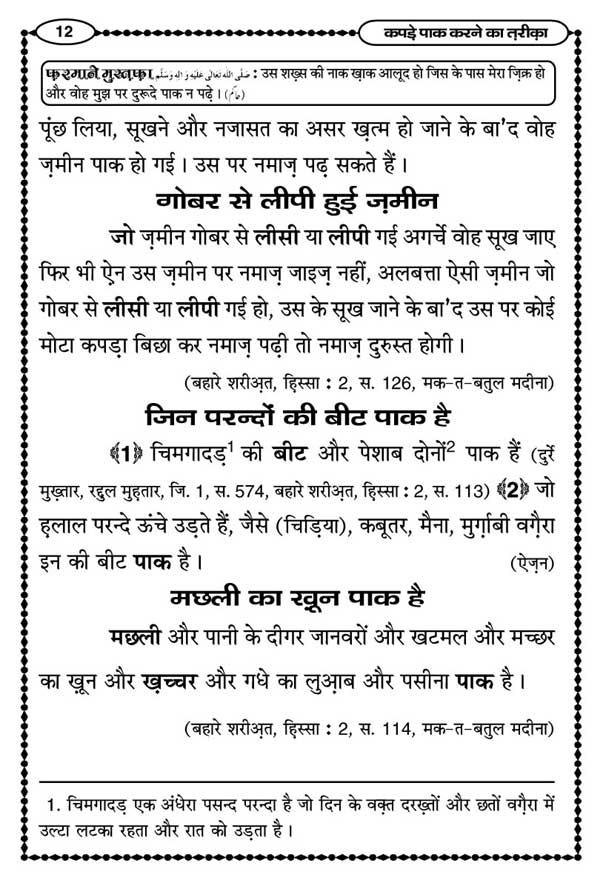 12
कपड़े पाक करने का त़रीक़ा
फ़रमाने मुस्त़फ़ा صَلَّى اللهُ تَعَالٰى عَلَيْهِ وَاٰلِهٖ وَسَلَّم : उस शख़्स की नाक ख़ाक आलूद हो जिस के पास मेरा ज़िक्र हो
और वोह मुझ पर दुरूदे पाक न पढ़े । (حاکم)
पूंछ लिया, सूखने और नजासत का असर ख़त्म हो जाने के बा'द वोह
ज़मीन पाक हो गई । उस पर नमाज़ पढ़ सकते हैं ।
गोबर से लीपी हुई ज़मीन
जो ज़मीन गोबर से लीसी या लीपी गई अगर्चे वोह सूख जाए
फिर भी ऐन उस ज़मीन पर नमाज़ जाइज़ नहीं, अलबत्ता ऐसी ज़मीन जो
गोबर से लीसी या लीपी गई हो, उस के सूख जाने के बा'द उस पर कोई
मोटा कपड़ा बिछा कर नमाज़ पढ़ी तो नमाज़ दुरुस्त होगी ।
(बहारे शरीअ़त, हिस्सा : 2, स. 126, मक-त-बतुल मदीना)
जिन परन्दों की बीट पाक है
﴾1﴿ चिमगादड़¹ की बीट और पेशाब दोनों² पाक हैं (दुर्रे
मुख़्तार, रद्दुल मुह़तार, जि. 1, स. 574, बहारे शरीअ़त, हिस्सा : 2, स. 113) ﴾2﴿ जो
ह़लाल परन्दे ऊंचे उड़ते हैं, जैसे (चिड़िया), कबूतर, मैना, मुर्ग़ाबी वग़ैरा
इन की बीट पाक है । (ऐज़न)
मछली का ख़ून पाक है
मछली और पानी के दीगर जानवरों और खटमल और मच्छर
का ख़ून और ख़च्चर और गधे का लुआ़ब और पसीना पाक है ।
(बहारे शरीअ़त, हिस्सा : 2, स. 114, मक-त-बतुल मदीना)
1. चिमगादड़ एक अंधेरा पसन्द परन्दा है जो दिन के वक़्त दरख़्तों और छतों वग़ैरा में
उल्टा लटका रहता और रात को उड़ता है ।